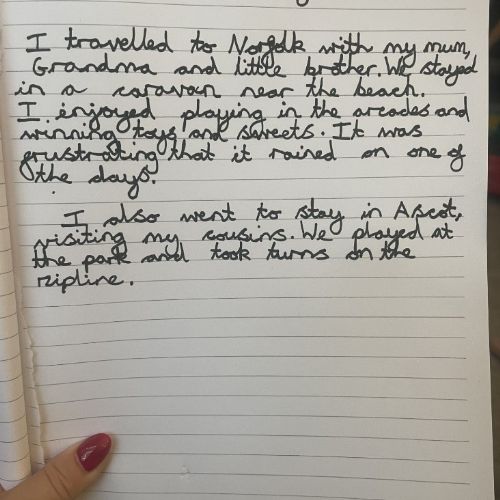 I travelled to Norfolk with my mum,
Grandma and little brother. We stayed
in a caravan near the beach.
I enjoyed playing in the arcades and
winning toys and sweets. It was
frustrating that it rained on one of
the days.
I also went to stay in Ascot,
visiting my cousins. We played at
the park and took turns on the
zipline.